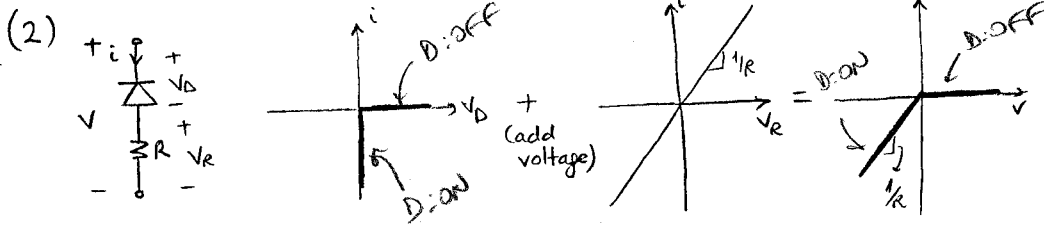 (2)
+ i +
V_D
V -
+
R V_R
- -
i
D:OFF
V_D
D:ON
+
(add
voltage)
i
1/R
V_R
=
D:ON
D:OFF
v
1/R